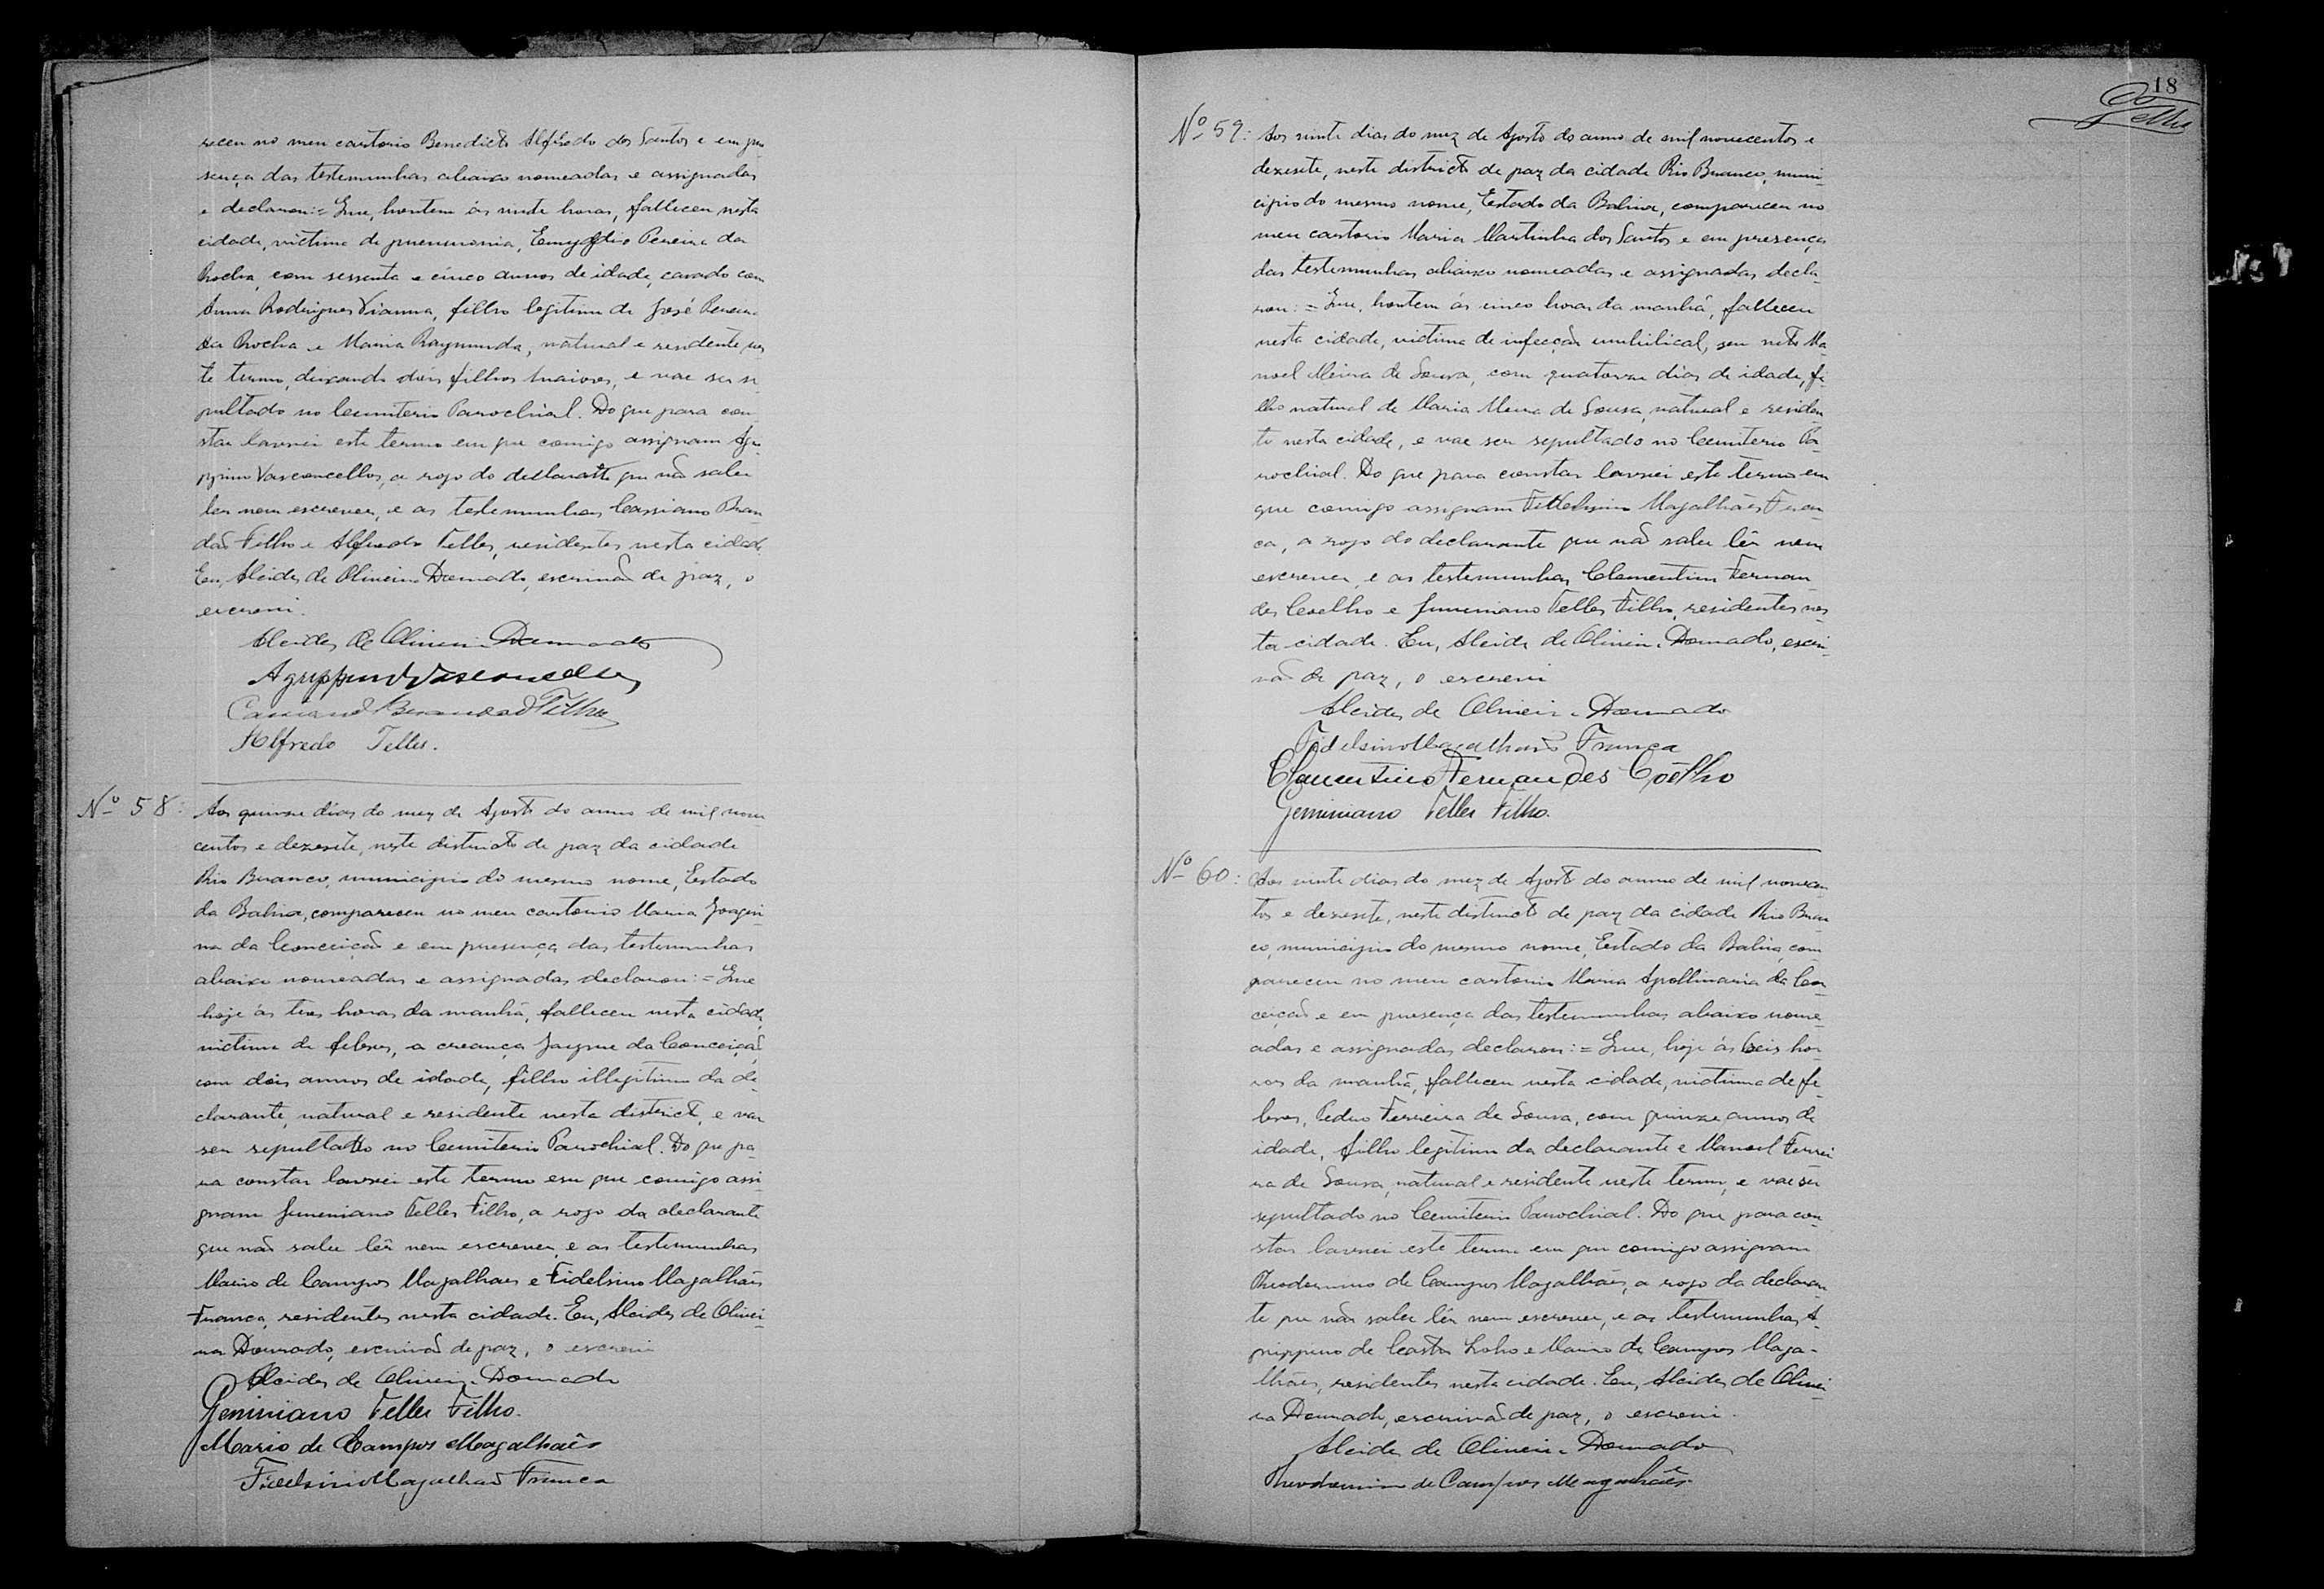 receu no meu cartorio Benedicto Alfredo dos Santos e em pre
sença das testemunhas abaixo nomeadas e assignadas
e declarou:= Que, hontem ás vinte horas, falleceu nesta
cidade, victima de pneumonia, Emygdio Pereira da
Rocha, com sessenta e cinco annos de idade, casado com
Anna Rodrigues Vianna, filho legitimo de José Pereira
da Rocha e Maria Raymunda, natural e residente nes
te termo, deixando dois filhos maiores, e vae ser se
pultado no Cemiterio Parochial. Do que para con
star lavrei este termo em que comigo assignam Agri
ppino Vasconcellos, a rogo do declarante que não sabe
ler nem escrever, e as testemunhas Cassiano Bran
dão Filho e Alfredo Telles, residentes nesta cidade.
Eu, Alcides de Oliveira Dourado, escrivão de paz, o
escrevi.
Alcides de Oliveira Dourado
Agrippino Vasconcellos
Cassiano Brandão Filho
Alfredo Telles.
Nº 58: Aos quinze dias do mez de Agosto do anno de mil nove
centos e dezesete, neste districto de paz da cidade
Rio Branco, municipio do mesmo nome, Estado
da Bahia, compareceu no meu cartorio Maria Joaqui
na da Conceição e em presença das testemunhas
abaixo nomeadas e assignadas, declarou:= Que
hoje ás tres horas da manhã, falleceu nesta cidade,
victima de febres, a creança Jayme da Conceição
com dois annos de idade, filho illegitimo da de
clarante, natural e residente nesta district, e vae
ser sepultado no Cemiterio Parochial. Do que pa
ra constar lavrei este termo em que comigo assi
gnam Juminiano Telles Filho, a rogo da declarante
que não sabe lêr nem escrever, e as testemunhas
Mario de Campos Magalhães e Fidelsino Magalhães
França, residentes nesta cidade. Eu, Alcides de Olivei
ra Dourado, escrivão de paz, o escrevi
Alcides de Oliveira Dourado
Geminiano Telles Filho.
Mario de Campos Magalhães
Fidelsino Magalhães França
18
Telles
Nº 59: Aos vinte dias do mez de Agosto do anno de mil novecentos e
dezesete, neste districto de paz da cidade Rio Branco, muni-
cipio do mesmo nome, Estado da Bahia, compareceu no
meu cartorio Maria Martinha dos Santos e em presença
das testemunhas abaixo nomeadas e assignadas decla
rou:= Que, hontem ás cinco horas da manhã, falleceu
nesta cidade, victima de infecção umbilical, seu neto Ma
noel Meira de Sousa, com quatorze dias de idade, fi
lho natural de Maria Meira de Sousa, natural e residen
te nesta cidade, e vae ser sepultado no Cemiterio Pa-
rochial. Do que para constar lavrei este termo em
que comigo assignam Fidelsino Magalhães Fran
ça, a rogo do declarante que não sabe lêr nem
escrever, e as testemunhas Clementino Fernan
des Coelho e Juminiano Telles Filho, residentes nes
ta cidade. Eu, Alcides de Oliveira Dourado, escri-
vão de paz, o escrevi
Alcides de Oliveira Dourado
Fidelsino Magalhães França
Clementino Fernandes Coêlho
Geminiano Telles Filho.
Nº 60: Aos vinte dias do mez de Agosto do anno de mil novecen
tos e dezesete, neste districto de paz da cidade Rio Bran
co, municipio do mesmo nome, Estado da Bahia, com
pareceu no meu cartorio Maria Apollinaria da Con
ceição e em presença das testemunhas abaixo nome-
adas e assignadas, declarou:= Que, hoje ás seis ho
ras da manhã, falleceu nesta cidade, victima de fe
bres, Pedro Ferreira de Sousa, com quinze annos de
idade, filho legitimo da declarante e Manoel Ferrei
ra de Sousa, natural e residente neste termo, e vae ser
sepultado no Cemiterio Parochial. Do que para con
star lavrei este termo em que comigo assignam
Theodomiro de Campos Magalhães, a rogo da declaran
te que não sabe lêr nem escrever, e as testemunhas A-
grippino de Castro Lobo e Mario de Campos Maga-
lhães, residentes nesta cidade. Eu, Alcides de Olivei
ra Dourado, escrivão de paz, o escrevi.
Alcides de Oliveira Dourado
Theodomiro de Campos Magalhães